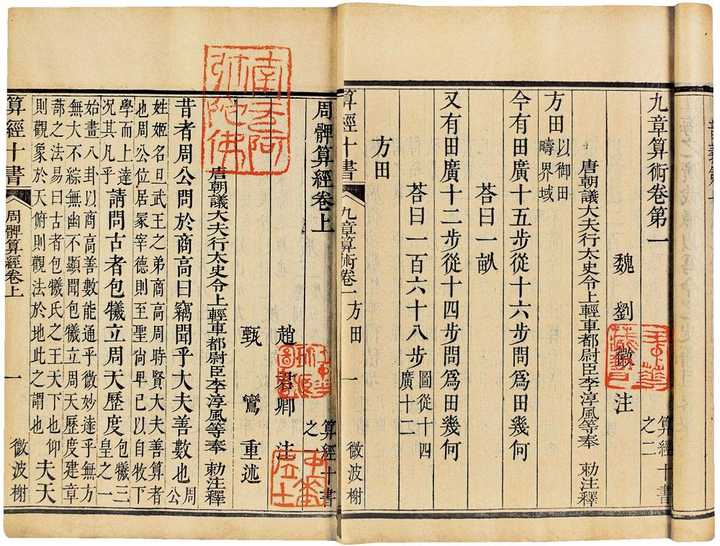 九章算術卷第一 算經十書之二
魏 劉徽 注
唐朝議大夫行太史令上輕車都尉臣李淳風等奉 勅注釋
方田 以御田疇界域
今有田廣十五步從十六步問爲田幾何
荅曰一畝
又有田廣十二步從十四步問爲田幾何
荅曰一百六十八步 圖從十四廣十二
方田
算經十書 九章算術卷一 方田 一 微波榭
周髀算經卷上 算經十書之一
趙君卿 注
甄鸞 重述
唐朝議大夫行太史令上輕車都尉臣李淳風等奉 勅注釋
昔者周公問於商高曰竊聞乎大夫善數也 周公
姓姬名旦武王之弟商高周時賢大夫善算者
也周公位居冢宰德則至聖尚卑己以自牧下
學而上達況其凡乎 請問古者包犧立周天歷度 包犧三皇之一
始畫八卦以商高善數能通乎微妙達乎無方
無大不綜無幽不顯聞包犧立周天歷度建章
蔀之法易曰古者包犧氏之王天下也仰
則觀象於天俯則觀法於地此之謂也 夫天
算經十書 周髀算經卷上 一 微波榭
南无阿
弥陀佛